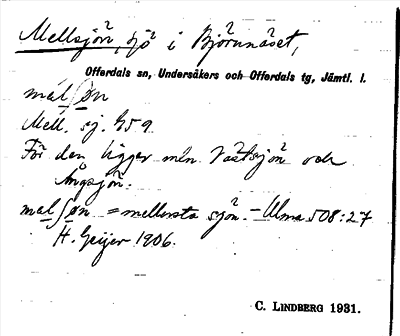 Mellsjön, sjö i Björnnäset,
Offerdals sn, Undersåkers och Offerdals tg, Jämtl. l.
mɑ́lʃøn
Mell. sj. G59.
För den ligger mln Västsjön och
Ångsjön.
malʃøn = mellersta sjön. – Ulma 508:27
H. Geijer 1906.
C. LINDBERG 1931.